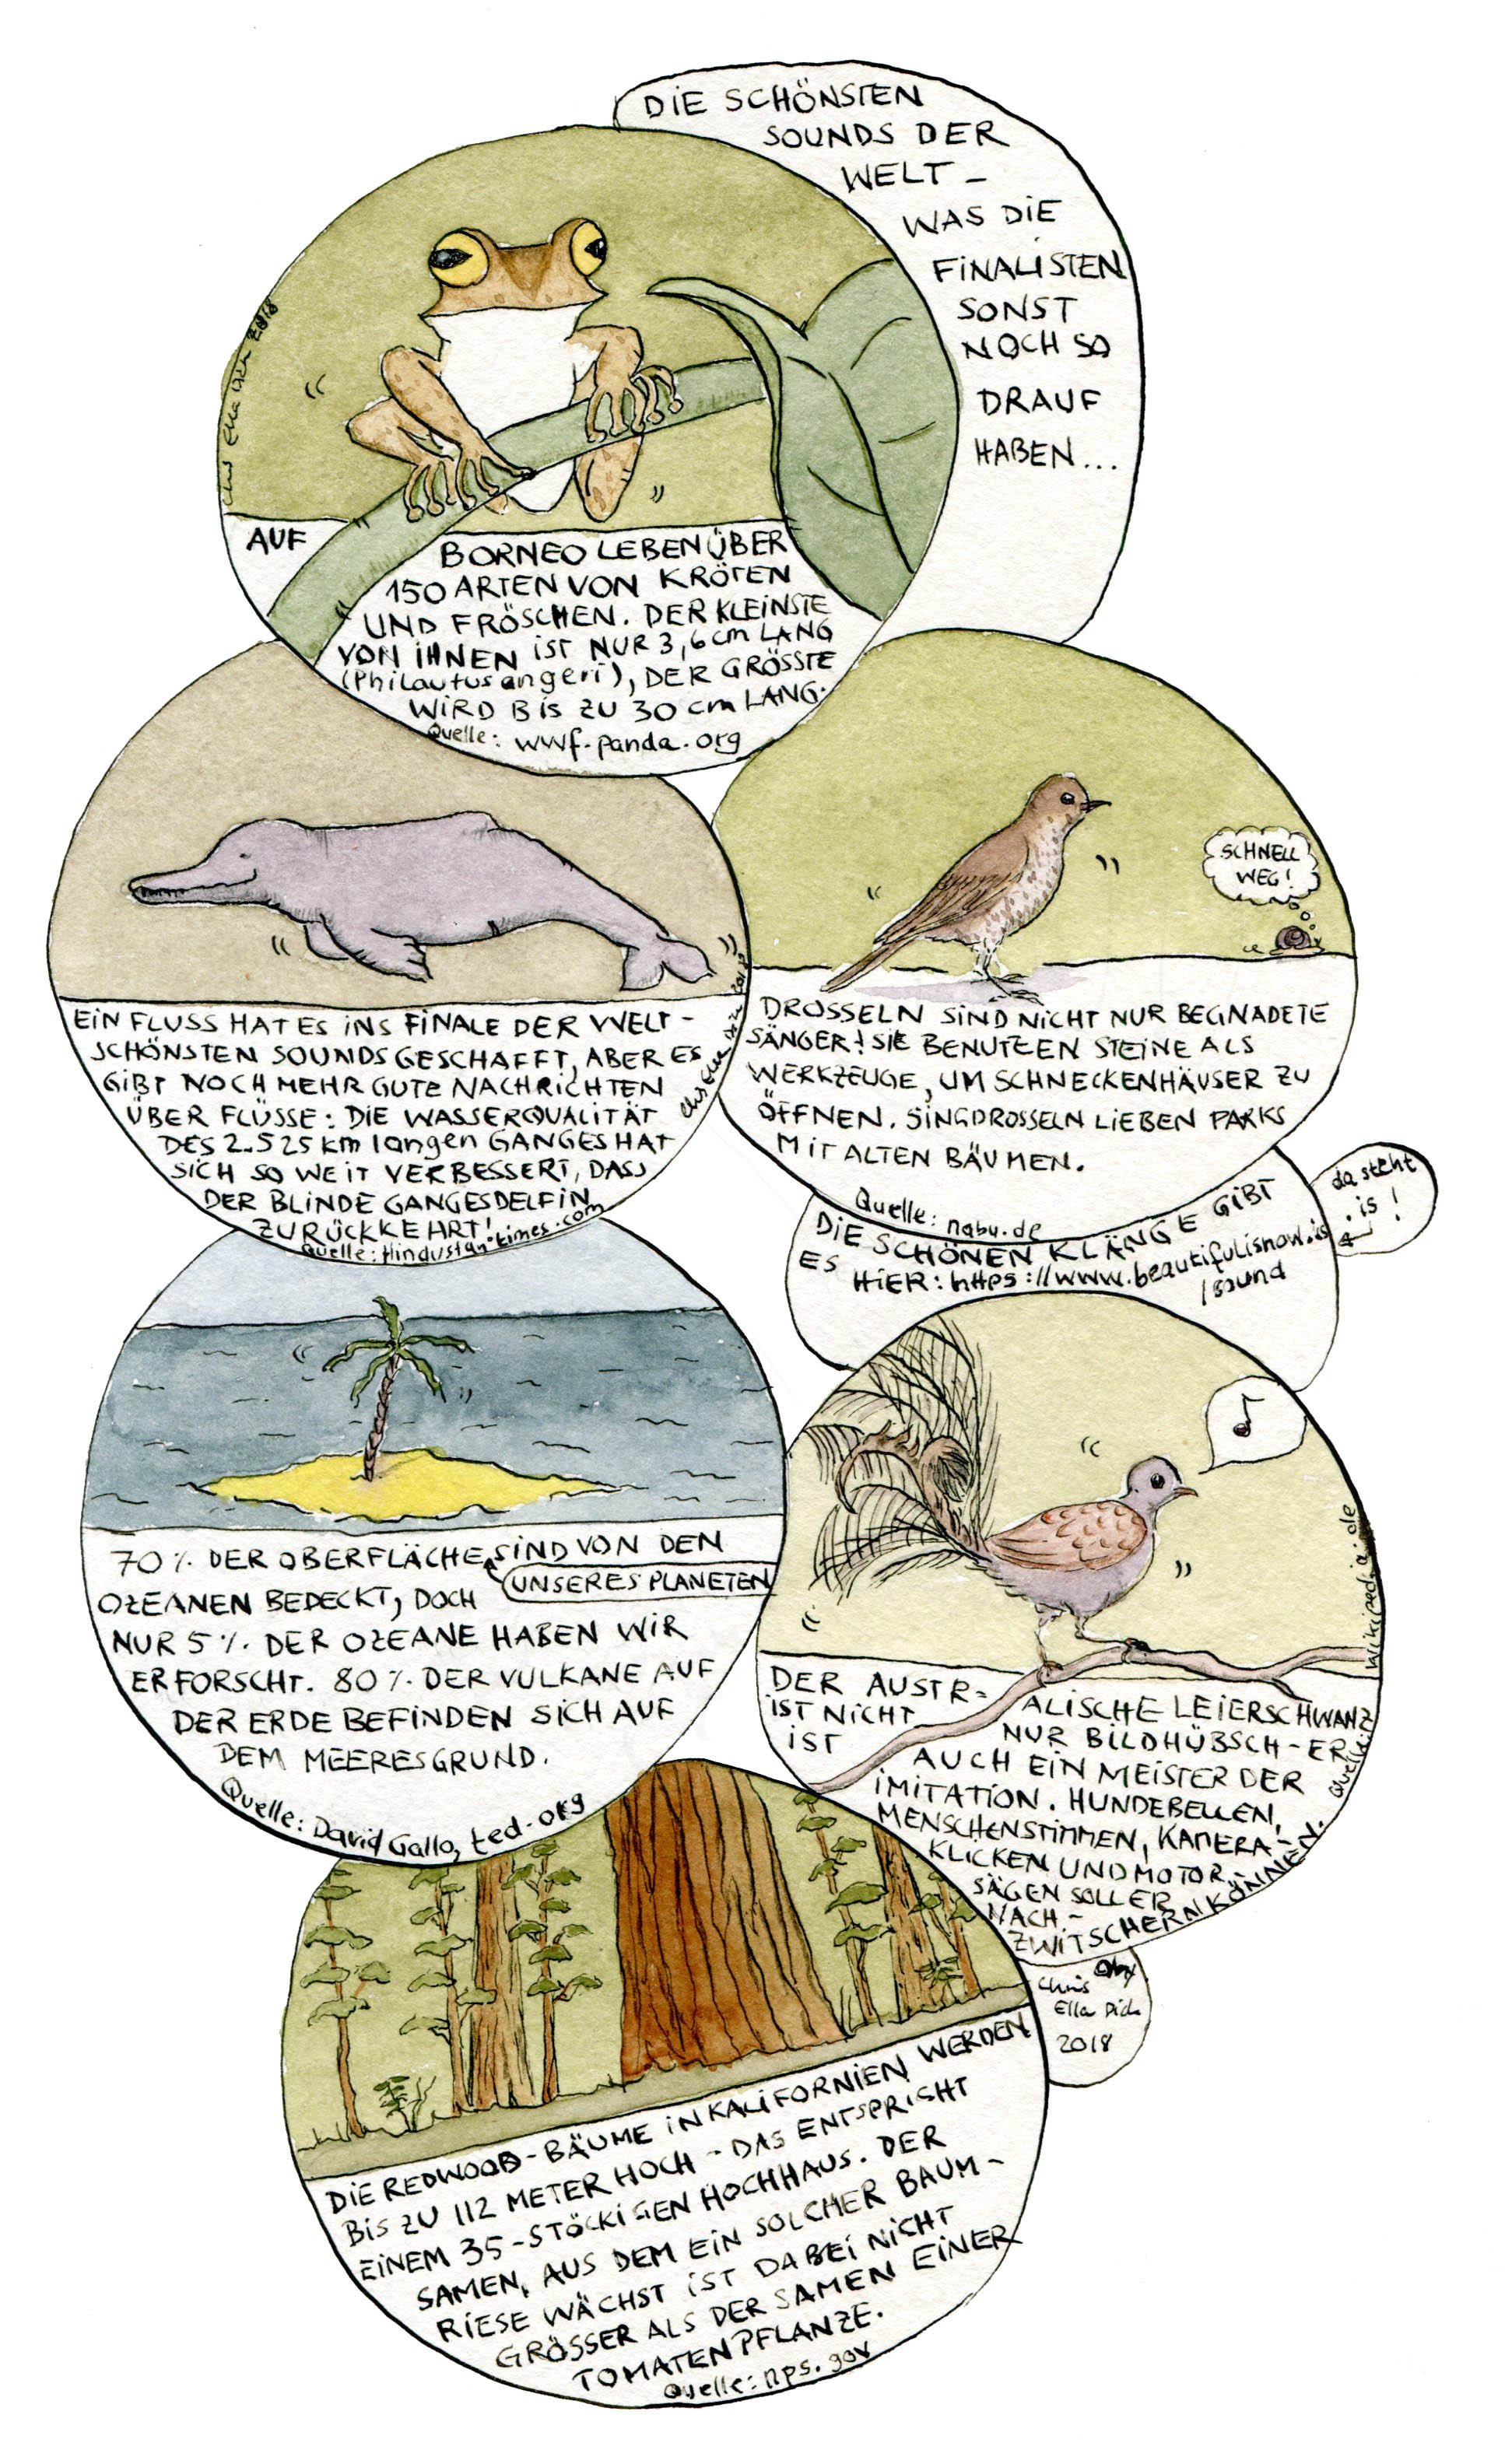 DIE SCHÖNSTEN
SOUNDS DER
WELT –
WAS DIE
FINALISTEN
SONST
NOCH SO
DRAUF
HABEN...
2018
AUF BORNEO LEBEN ÜBER
150 ARTEN VON KRÖTEN
UND FRÖSCHEN. DER KLEINSTE
VON IHNEN IST NUR 3,6 cm LANG
(Philautus angeri), DER GRÖSSTE
WIRD BIS ZU 30 cm LANG.
Quelle: wwf.panda.org
EIN FLUSS HAT ES INS FINALE DER WELT-
SCHÖNSTEN SOUNDS GESCHAFFT, ABER ES
GIBT NOCH MEHR GUTE NACHRICHTEN
ÜBER FLÜSSE: DIE WASSERQUALITÄT
DES 2.525 km langen GANGES HAT
SICH SO WEIT VERBESSERT, DASS
DER BLINDE GANGESDELFIN
ZURÜCKKEHRT!
Quelle: Hindustantimes.com
SCHNELL
WEG!
DROSSELN SIND NICHT NUR BEGNADETE
SÄNGER! SIE BENUTZEN STEINE ALS
WERKZEUGE, UM SCHNECKENHÄUSER ZU
ÖFFNEN. SINGDROSSELN LIEBEN PARKS
MIT ALTEN BÄUMEN.
Quelle: nabu.de
DIE SCHÖNEN KLÄNGE GIBT
ES HIER: https://www.beautifulisnow.is
/sound
da steht
.is!
70% DER OBERFLÄCHE SIND VON DEN
UNSERES PLANETEN
OZEANEN BEDECKT, DOCH
NUR 5%. DER OZEANE HABEN WIR
ERFORSCHT. 80%. DER VULKANE AUF
DER ERDE BEFINDEN SICH AUF
DEM MEERESGRUND.
Quelle: David Gallo, ted.org
DER AUSTR-ALISCHE LEIERSCHWANZ
IST NICHT NUR BILDHÜBSCH - ER
IST AUCH EIN MEISTER DER
IMITATION. HUNDEBELLEN,
MENSCHENSTIMMEN, KAMERA-
KLICKEN UND MOTOR
SÄGEN SOLL ER
NACH-
ZWITSCHERN KÖNNEN.
Quelle: Wikipedia.de
Chris
Ella Dick
2018
DIE REDWOOD-BÄUME IN KALIFORNIEN WERDEN
BIS ZU 112 METER HOCH - DAS ENTSPRICHT
EINEM 35-STÖCKIGEN HOCHHAUS. DER
SAMEN, AUS DEM EIN SOLCHER BAUM-
RIESE WÄCHST IST DABEI NICHT
GRÖSSER ALS DER SAMEN EINER
TOMATENPFLANZE.
Quelle: nps.gov